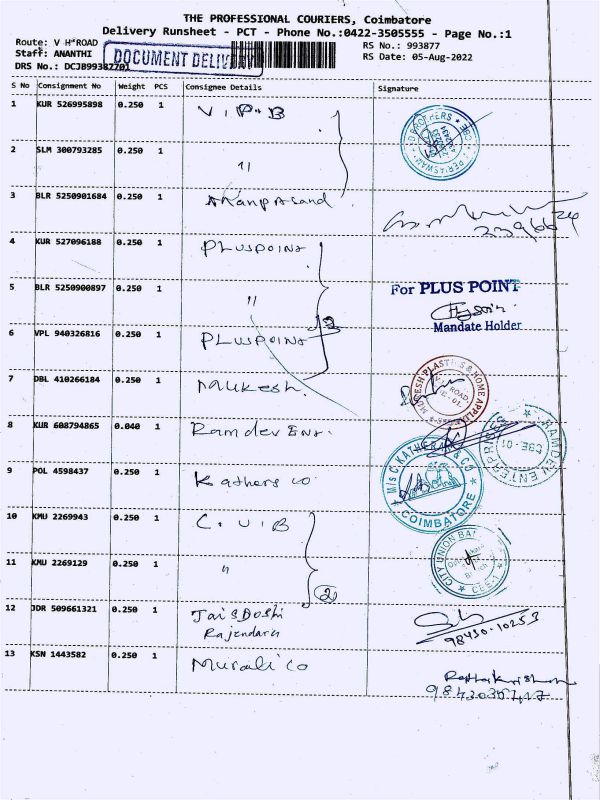 THE PROFESSIONAL COURIERS, Coimbatore
Delivery Runsheet - PCT - Phone No.:0422-3505555 - Page No.:1
Route: V H ROAD
RS No.: 993877
Staff: ANANTHI
DOCUMENT DELIVERY
RS Date: 05-Aug-2022
DRS No.: DCJB99387701
S No Consignment No Weight PCS Consignee Details Signature
1 KUR 526995898 0.250 1 V.P.B
2 SLM 300793285 0.250 1 "
3 BLR 5250901684 0.250 1
4 KUR 527096188 0.250 1 PLUSPOINT
5 BLR 5250900897 0.250 1 "
For PLUS POINT
Mandate Holder
6 VPL 940326816 0.250 1 PLUSPOINT
7 DBL 410266184 0.250 1 Mukesh.
8 KUR 608794865 0.040 1 Ramdev Ent.
RAMDEV ENTERPRISES
CBE-01
9 POL 4598437 0.250 1 Kathers co
M/s C. KATHERAN & CO
COIMBATORE
10 KMU 2269943 0.250 1 C.U.B
11 KMU 2269129 0.250 1 "
2
CITY UNION BANK
12 JDR 509661321 0.250 1 Jais Doshi
Rajendara
98430-10253
13 KSN 1443582 0.250 1 Murali co
Radhakrishnan